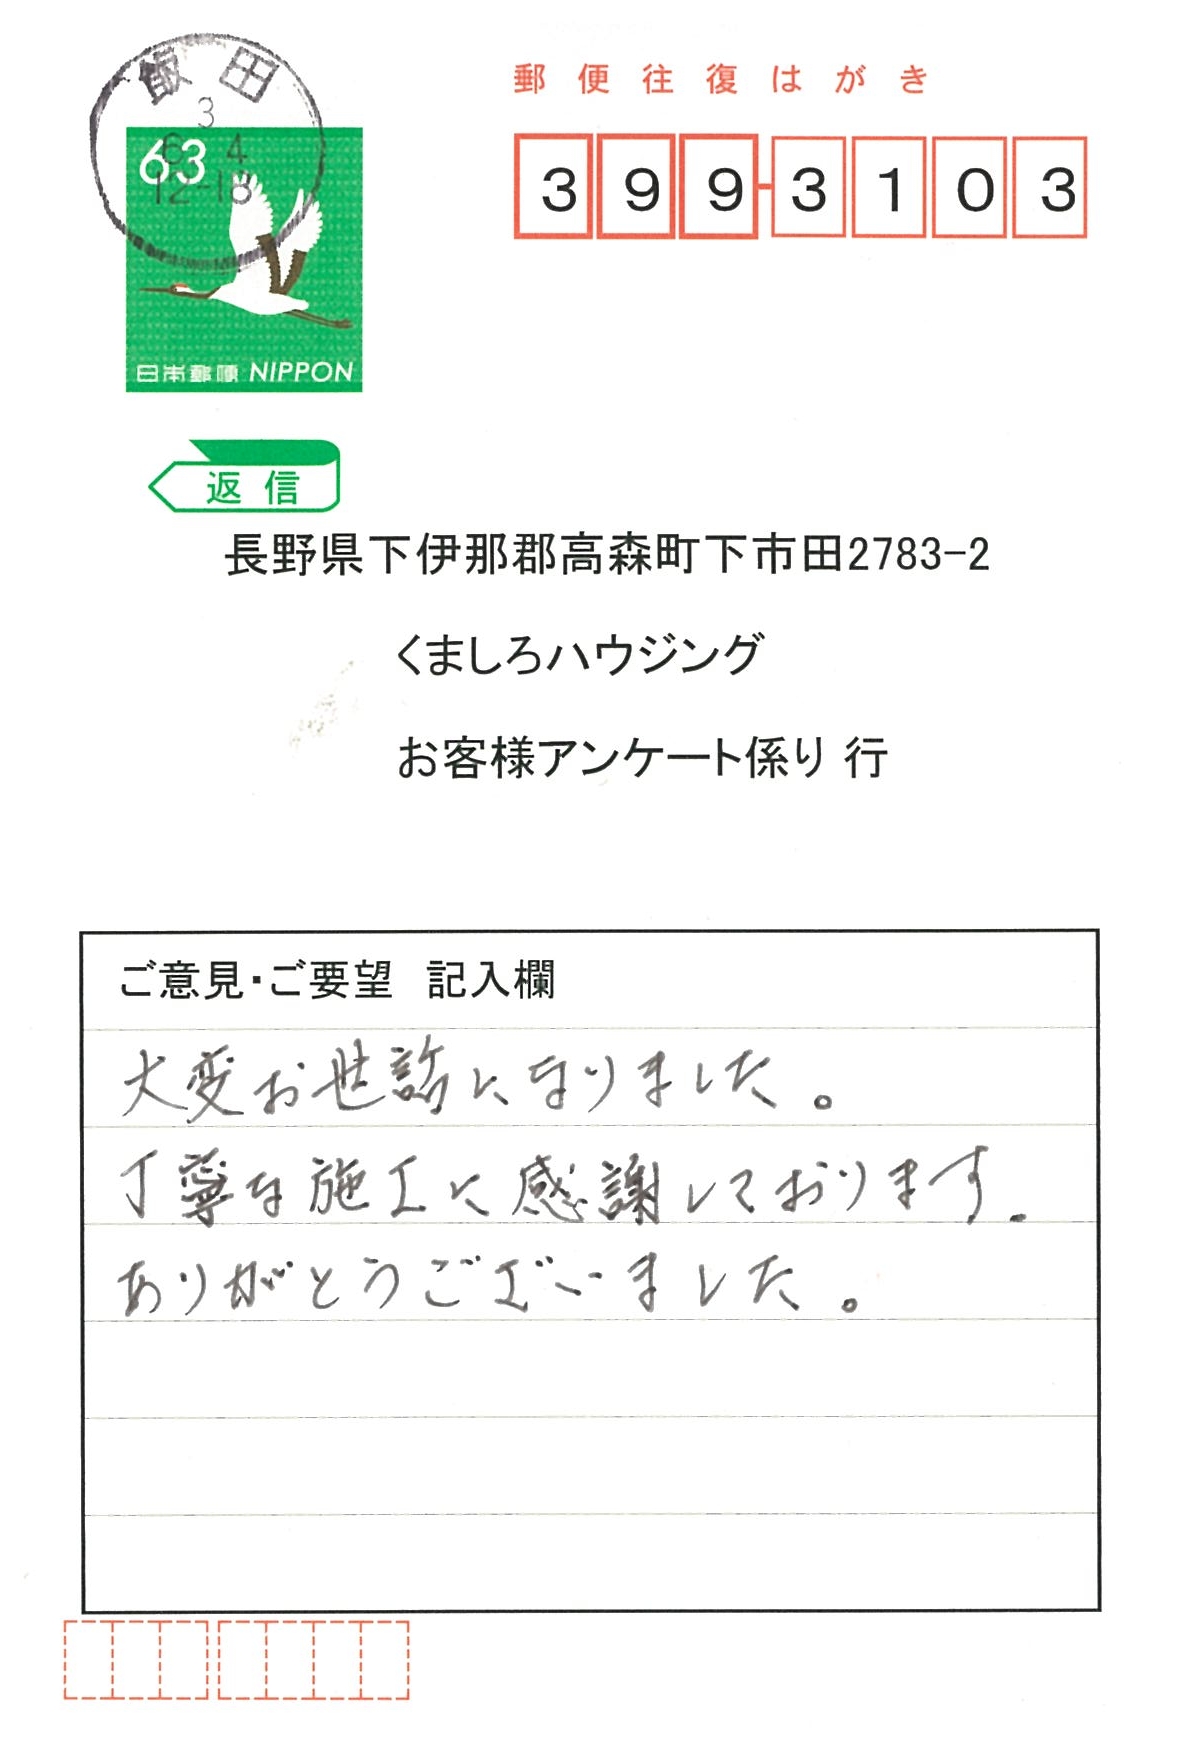 飯田
3
6 4
12-18
63
日本郵便 NIPPON
郵便往復はがき
399-3103
返信
長野県下伊那郡高森町下市田2783-2
くましろハウジング
お客様アンケート係り 行
ご意見・ご要望 記入欄
大変お世話になりました。
丁寧な施工に感謝しております.
ありがとうございました。